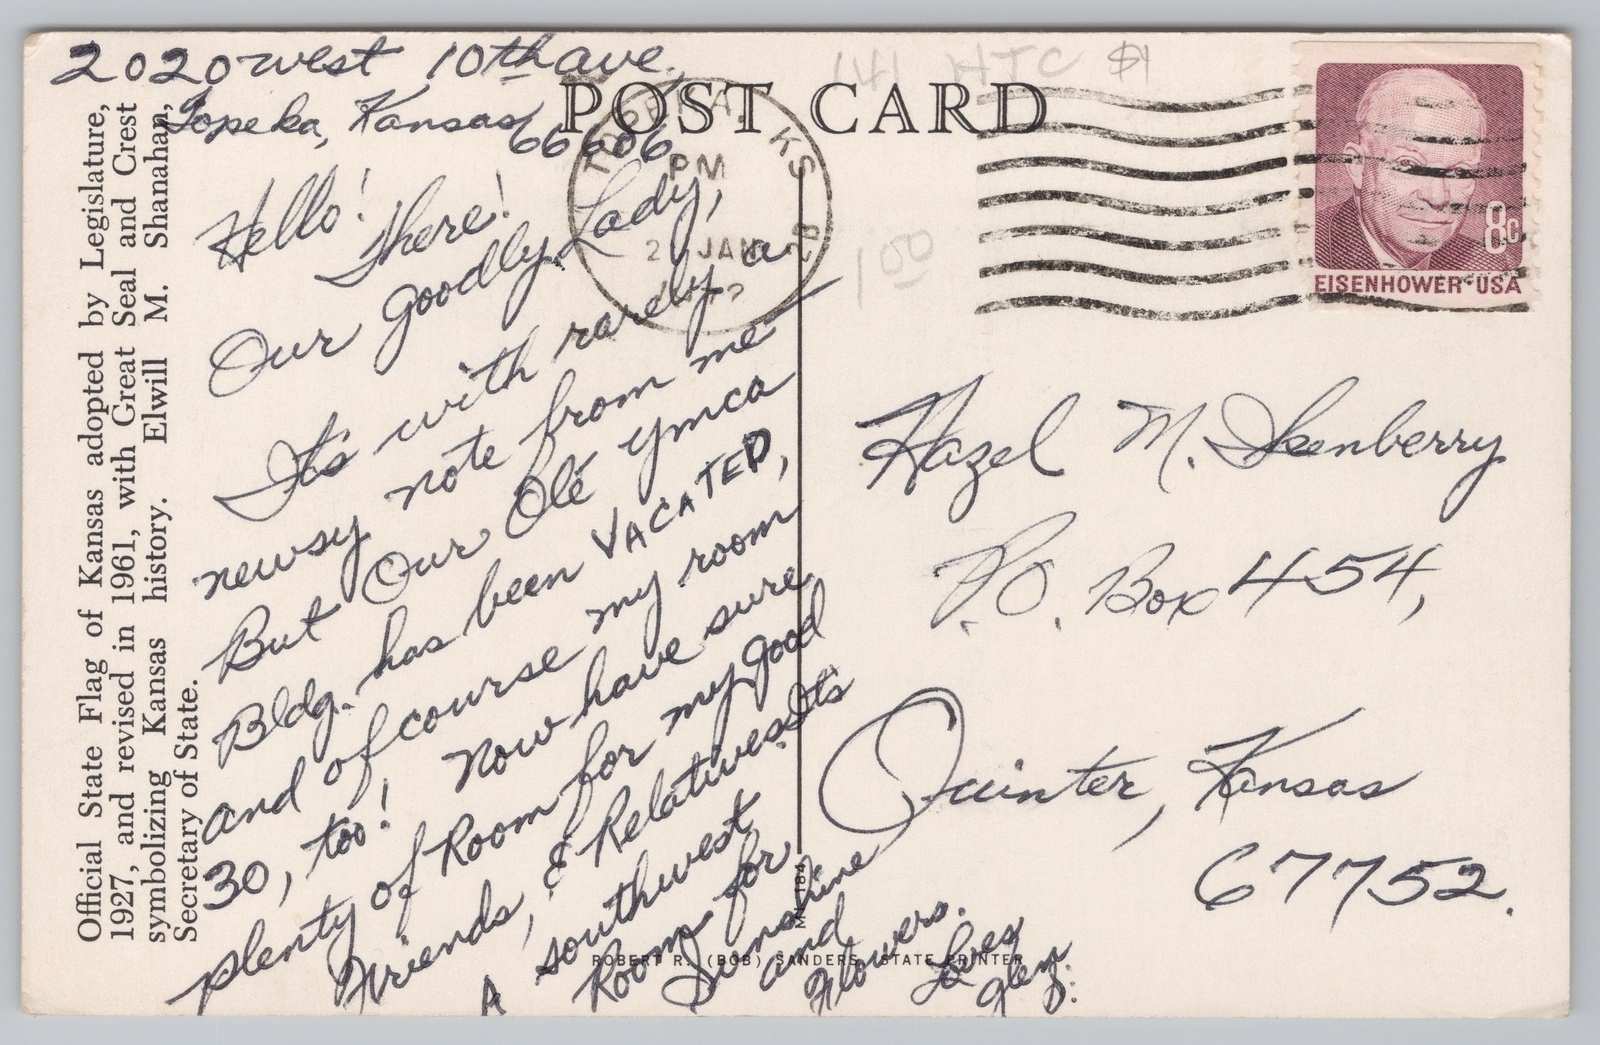 2020 west 10th ave.,
Topeka, Kansas
66606
POST CARD
141 HTC $1
1 00
TOPEKA, KS
PM
2 JAN
EISENHOWER·USA
8c
Official State Flag of Kansas adopted by Legislature,
1927, and revised in 1961, with Great Seal and Crest
symbolizing Kansas history. Elwill M. Shanahan,
Secretary of State.
Hello!
There!
Our goodly Lady,
It's with rarely a
newsy note from me—
But Our Olé ymca
Bldg. has been VACATED,
and of course my room
30, too! Now have sure
plenty of Room for my good
Friends, & Relatives. It's
A southwest
Room for
Sunshine
and
Flowers.
Loves
Glen.
Hazel M. Ikenberry
P.O. Box 454,
Quinter, Kansas
67752.
ROBERT R. (BOB) SANDERS, STATE PRINTER